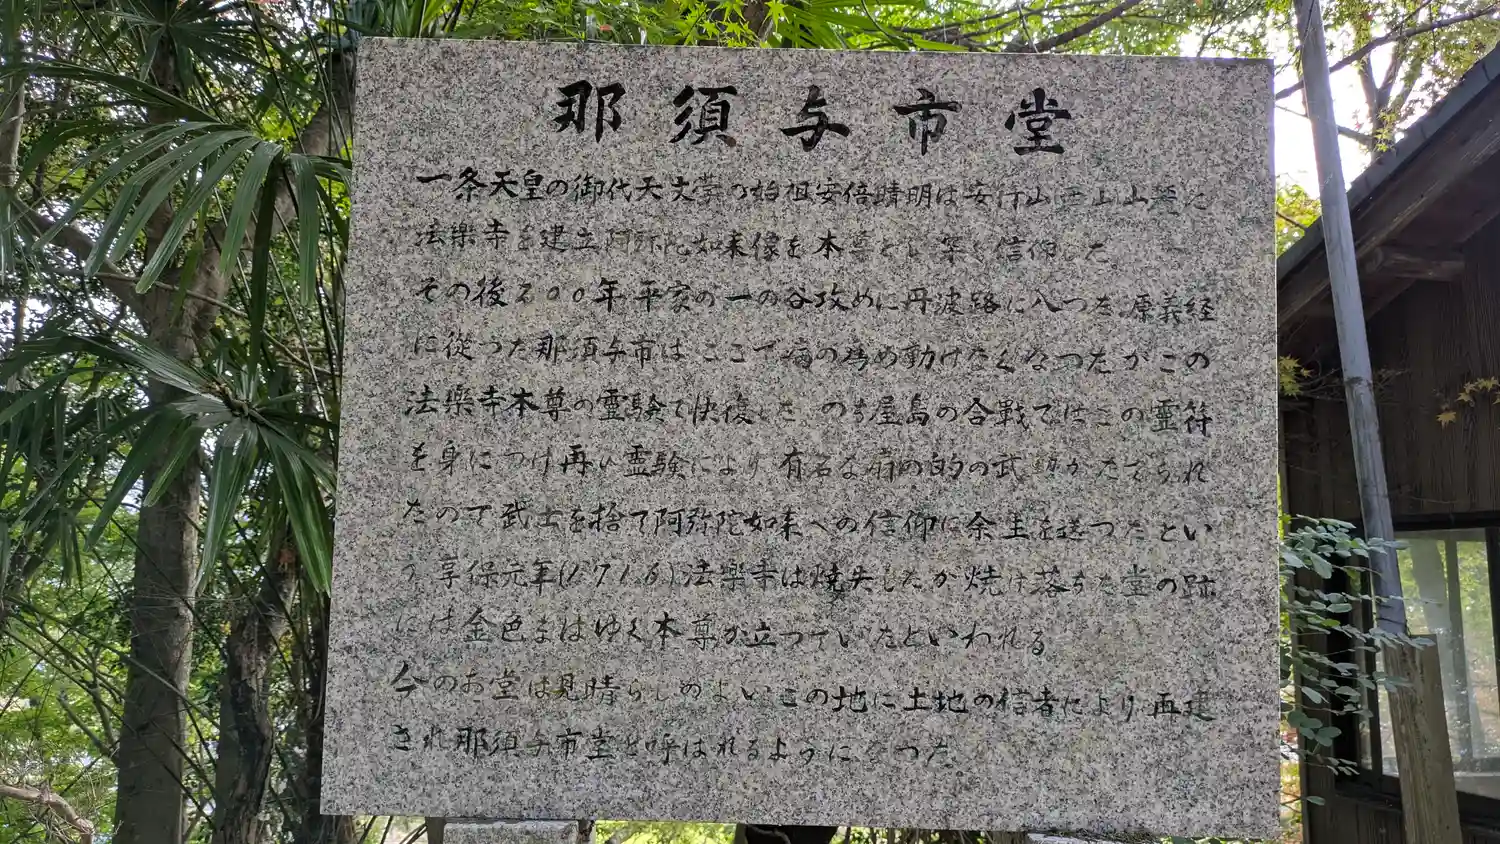 那須与市堂
一条天皇の御代天文学の始祖安倍晴明は安行山西山山麓に
法樂寺を建立阿弥陀如来像を本尊とし篤く信仰した。
その後200年平家の一の谷攻めに丹波路に入つた源義経
に従つた那須与市はここで病の為め動けなくなつたがこの
法樂寺本尊の霊験で快復した。のち屋島の合戰ではこの霊符
を身につけ再い霊験により有名な扇の的の武勲がたてられ
たので武士を捨て阿弥陀如来への信仰に余生を送つたとい
う享保元年(1716)法樂寺は焼失したが焼け落ちた堂の跡
には金色まばゆく本尊が立つていたといわれる
今のお堂は見晴らしのよいこの地に土地の信者により再建
され那須与市堂と呼ばれるようになつた。